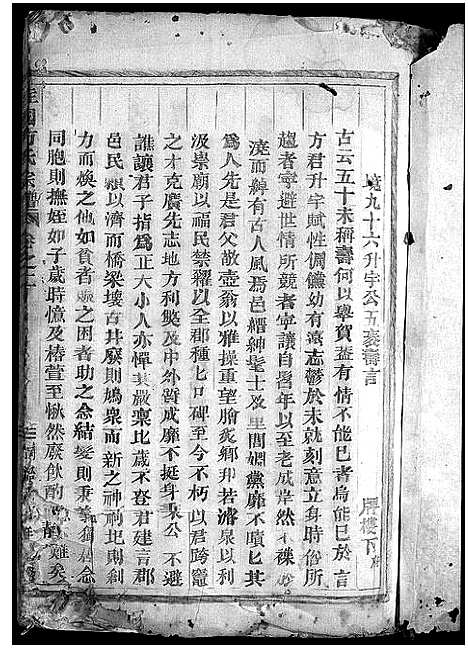 境九十六升宇公五袠壽言
古云五十未稱壽何以舉賀蓋有情不能已者烏能已於言
方君升宇賦性倜儻幼有遠志鬱於未就刻意立身時俗所
趨者寧避世情所競者寧讓自髫年以至老成岸然不襍
淺而綽有古人風焉邑縉紳髦士及里閭婣黨靡不嘖匕其
為人先是君父故壺翁以雅操重望膾炙鄉邦若濬泉以利
汲崇廟以福民禁糶以全郡種匕口碑至今不朽以君跨竈
之才克廣先志地方利獘及中外質成靡不挺身秉公不避
誰讓君子指為正大小人亦憚其嚴稟比歲不登君建言郡
邑民賴以濟而橋梁壞古井廢則鳩衆而新之神祠圯則創
力而煥之他如貧者賑之困者助之念結髮則秉篤獨念
同胞則撫姪如子歲時憶及椿萱至愀然廢飲酌 難矣